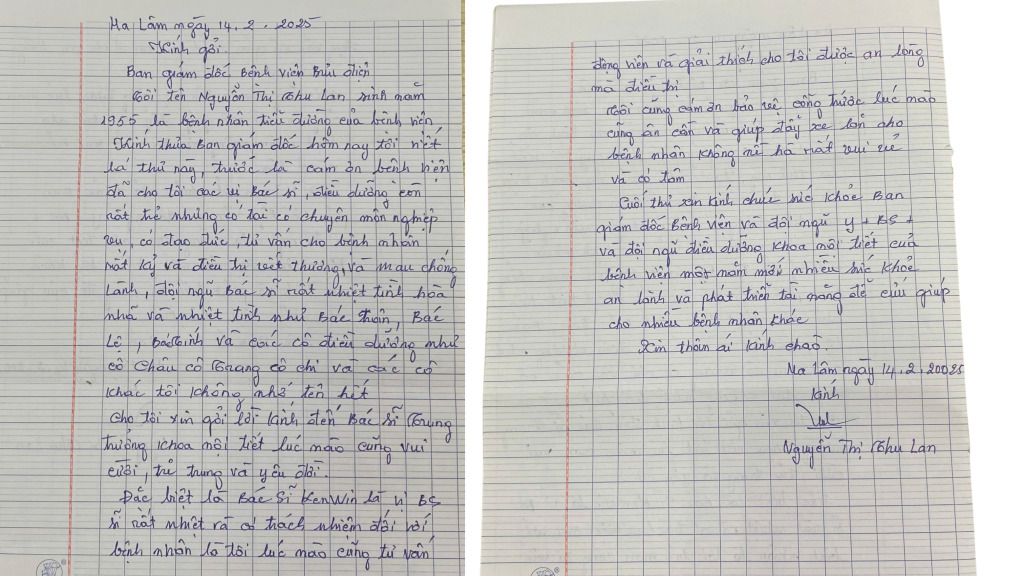 Ma Lâm ngày 14.2.2025
Kính gởi.
Ban giám đốc bệnh viên Bưu điện
Tôi tên Nguyễn Thị Thu Lan sinh năm
1955 là bệnh nhân tiểu đường của bệnh viên
Kính thưa Ban giám đốc hôm nay tôi viết
lá thư này, trước là cám ơn bệnh viện
đã cho tôi các vị Bác sĩ, điều dưỡng còn
rất trẻ nhưng có tài có chuyên môn nghiệp
vụ, có đạo đức, tư vấn cho bệnh nhân
rất kỷ và điều trị vết thương, và mau chống
lành, đội ngũ Bác sĩ rất nhiệt tình hòa
nhã và nhiệt tình như Bác Thuận, Bác
Lệ, Bác Trinh và các cô điều dưỡng như
cô Châu cô Trang cô chi và các cô
khác tôi không nhớ tên hết
cho tôi xin gởi lời kính đến Bác sĩ Trung
trưởng khoa nội tiết lúc mào cũng vui
cười, trẻ trung và yêu đời.
Đặc biệt là Bác Sĩ KenWin là vị BS
sĩ rất nhiệt và có trách nhiệm đối với
bệnh nhân là tôi lúc mào cũng tư vấn
động viên và giải thích cho tôi được an lòng
mà điều trị
Tôi cũng cám ơn bảo vệ cổng trước lúc mào
cũng ân cần và giúp đẩy xe lăn cho
bệnh nhân không nề hà rất vui vẻ
và có tâm
Cuối thư xin kính chúc sức khỏe Ban
giám đốc Bệnh viên và đội ngũ y + BS +
và đội ngũ điều dưỡng khoa nội tiết của
bệnh viên một năm mới nhiều sức khoẻ
an lành và phát triển tài năng để cứu giúp
cho nhiều bệnh nhân khác
Xin thân ái kính chào.
Ma Lâm ngày 14.2.20025
kính
Nguyễn Thị Thu Lan